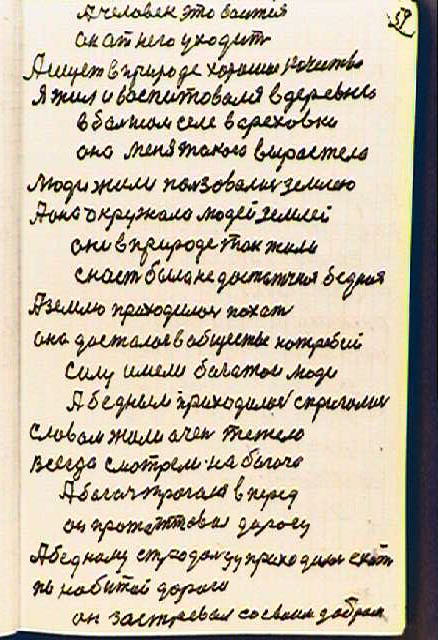 57
А человек это боится
он от него уходит
А ищет в природе хороши качества
Я жил и воспитовался в деревне
в болшом селе в ореховки
оно меня такого вырастело
Люди жили ползовалис землею
А она окружала людей землей
они в природе так жили
снаст была не достаточная бедная
А землю приходилос пахат
она досталос в обществе
силу имели багатои люди
А бедным приходилос спригалис
словом жили очен тежело
всегда смотрел на багача
А багач прогал в перед
он протоптовал дорогу
А бедному приходилос ехат
по набитой дороги
он застревал со своим добром